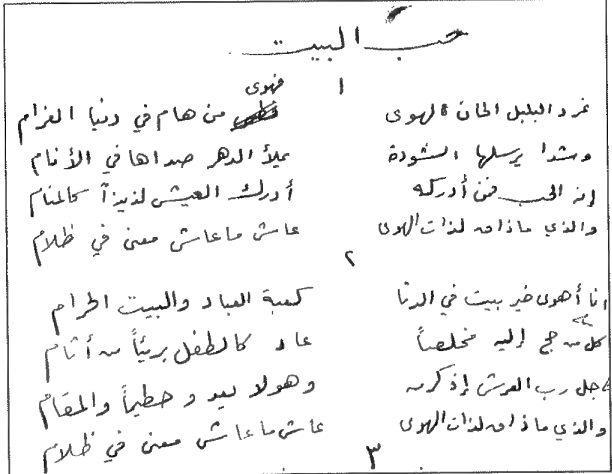 حب البيت
١
غرد البلبل الحان الهوى فهوى من هام في دنيا الغرام
وشدا يرسلها انشودة يملأ الدهر صداها في الأنام
إنه الحب فمن أدركه أدرك العيش لذيذاً كالمنام
والذي ما ذاق لذات الهوى عاش ما عاش معنى في ظلام
٢
انا أهوى خير بيت في الدنا كعبة العباد والبيت الحرام
كل من حج إليه مخلصاً عاد كالطفل بريئاً من أثام
جل رب العرش إذ كرمه وحطيماً والمقام
والذي ما ذاق لذات الهوى عاش ما عاش معنى في ظلام
٣